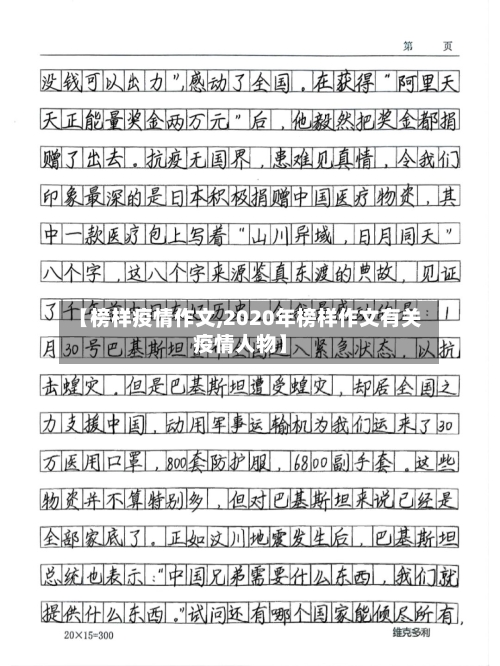 第 页
没钱可以出力”，感动了全国。在获得“阿里天
天正能量奖金两万元”后，他毅然把奖金都捐
赠了出去。抗疫无国界，患难见真情，令我们
印象最深的是日本积极捐赠中国医疗物资，其
中一款医疗包上写着“山川异域，日月同天”
八个字，这八个字来源鉴真东渡的典故，见证
了千
【榜样疫情作文,2020年榜样作文有关
疫情人物】
：1
月30号巴基斯坦 入紧急状态，以抗
击蝗灾。但是巴基斯坦遭受蝗灾，却居全国之
力支援中国，动用军事运输机为我们运来了30
万医用口罩，800套防护服，6800副手套。这些
物资并不算特别多，但对巴基斯坦来说已经是
全部家底了。正如汶川地震发生后，巴基斯坦
总统也表示：“中国兄弟需要什么东西，我们就
提供什么东西。”试问还有哪个国家能倾尽所有，
20×15=300 维克多利